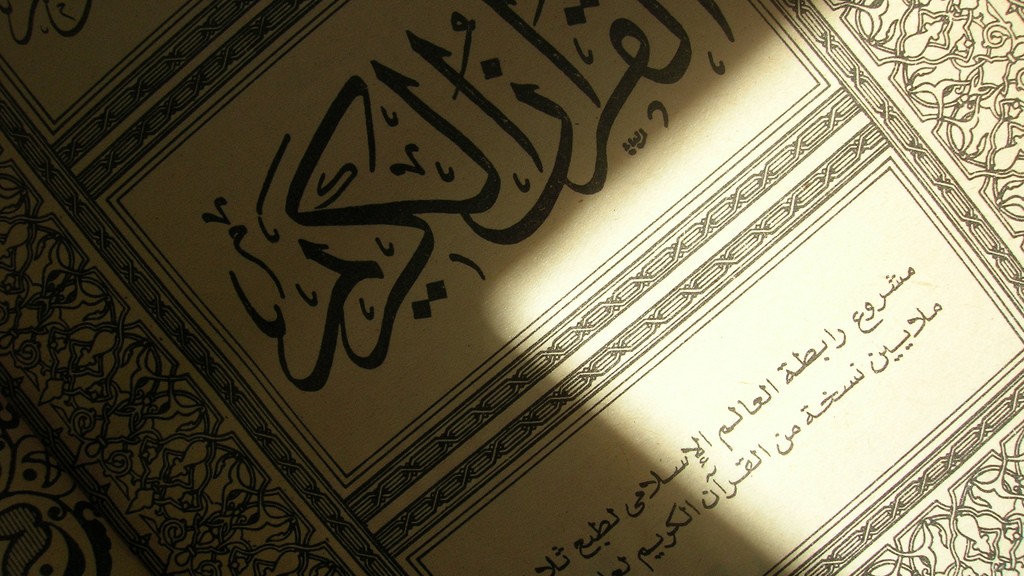 القرآن الكريم
مشروع رابطة العالم الإسلامى لطبع
ملايين نسخة من القرآن الكريم